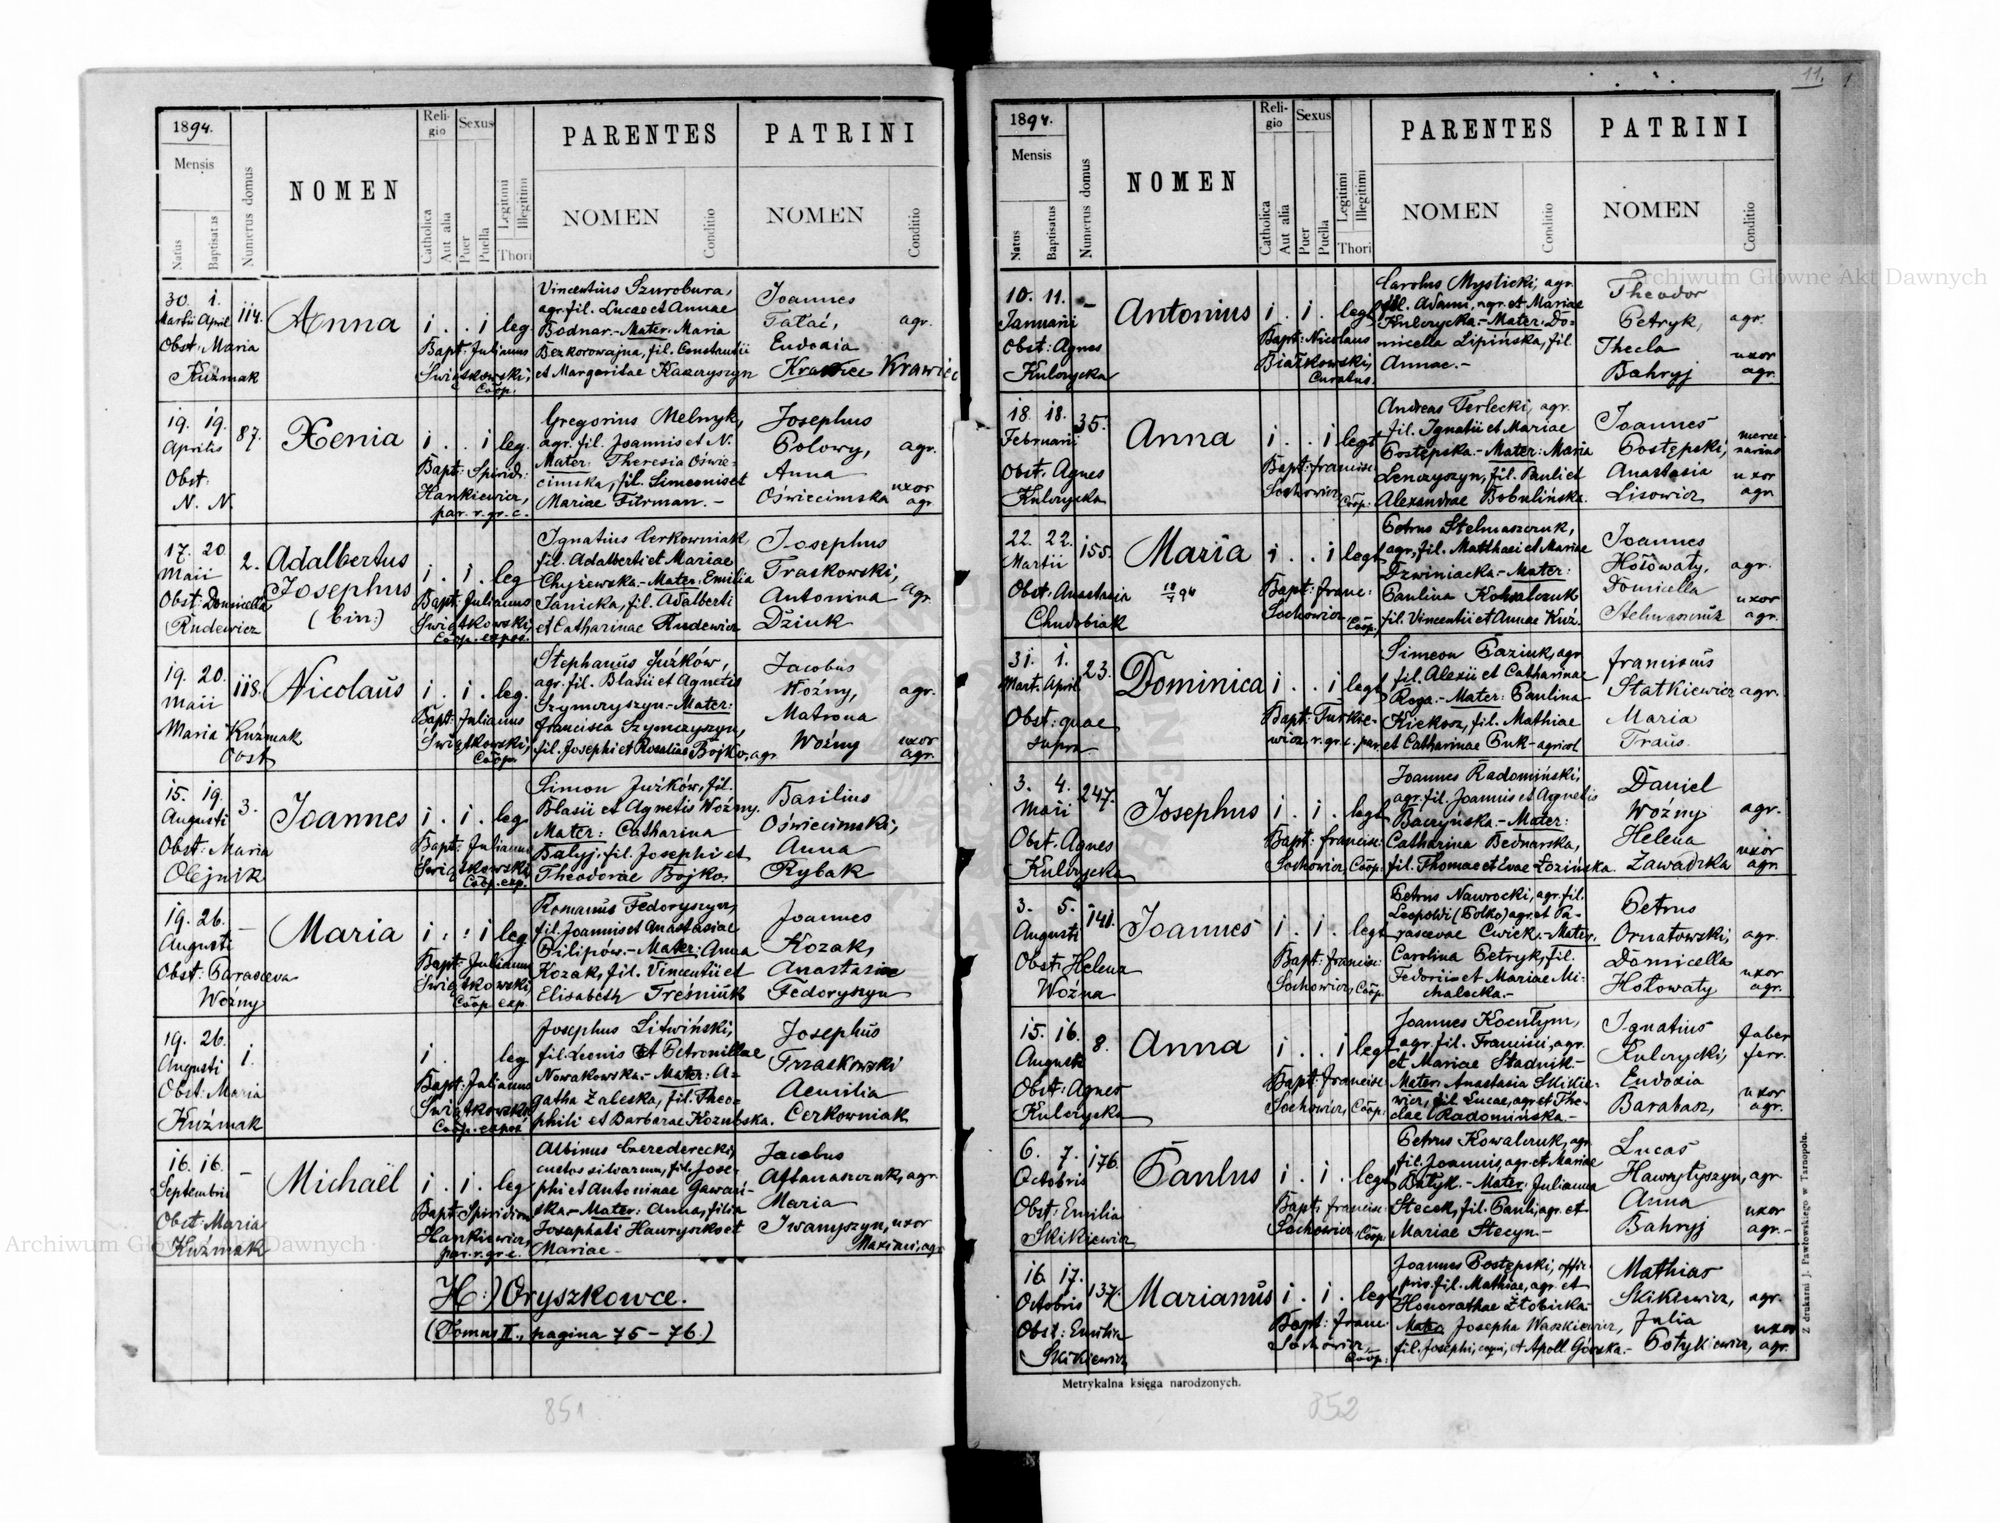 1894.
Mensis
Natus
Baptisatus
Numerus domus
NOMEN
Religio
Catholica
Aut alia
Sexus
Puer
Puella
Legitimi
Illegitimi
Thori
PARENTES
NOMEN
Conditio
PATRINI
NOMEN
Conditio
30. 1. 114.
Martii April
Obst: Maria
Kuźmak
Anna
i . . i leg
Bapt: Julianus
Świątkowski,
Coop.
Vincentius Szurobura,
agr. fil. Lucae et Annae
Bodnar.- Mater: Maria
Bezkorowajna, fil. Constantii
et Margaritae Kaczryszyn
Joannes
Tałać,
Eudoxia
Krawiec
agr.
19. 19. 87.
Aprilis
Obst:
N. N.
Xenia
i . . i leg.
Bapt: Spirid:
Hankiewicz,
par. r. gr. c.
Gregorius Melnyk,
agr. fil. Joannis et N.
Mater: Theresia Oświe-
cimska, fil. Simeonis et
Mariae Fitrman.-
Josephus
Polowy, agr.
Anna
Oświecimska uxor
agr.
17. 20. 2.
Maii
Obst: Domicella
Rudewicz
Adalbertus
Josephus
(bin:)
i . i . leg
Bapt: Julianus
Świątkowski,
Coop. expos.
Ignatius Cerkowniak,
fil. Adalberti et Mariae
Chyżewska.- Mater: Emilia
Janicka, fil. Adalberti
et Catharinae Rudewicz
Josephus
Traskowski,
Antonina agr.
Dziuk
19. 20. 118.
Maii
Maria Kuźmak
Obst
Nicolaus
i . i . leg.
Bapt: Julianus
Świątkowski,
Coop.
Stephanus Juźków,
agr. fil. Blasii et Agnetis
Szymczyszyn.- Mater:
Francisca Szymczyszyn,
fil. Josephi et Rosaliae Bojko, agr.
Jacobus
Woźny, agr.
Matrona
Woźny uxor
agr.
15. 19. 3.
Augusti
Obst: Maria
Olejnik
Joannes
i . i . leg
Bapt: Julianus
Świątkowski,
Coop. exp.
Simon Juźków, fil.
Blasii et Agnetis Woźny.
Mater: Catharina
Bałyj, fil. Josephi et
Theodorae Bojko.
Basilius
Oświecimski,
Anna
Rybak
19. 26. –
Augusti
Obst: Parasceva
Woźny
Maria
i . . i leg
Bapt: Julianus
Świątkowski,
Coop. exp.
Romanus Fedoryszyn,
fil. Joannis et Anastasiae
Pilipów.- Mater: Anna
Kozak, fil. Vincentii et
Elisabeth Treśniuk
Joannes
Kozak,
Anastasia
Fedoryszyn
19. 26. 1.
Augusti
Obst: Maria
Kuźmak
i . leg
Bapt: Julianus
Świątkowski,
Coop. expos
Josephus Litwiński,
fil. Leonis et Petronillae
Nowakowska.- Mater: A-
gatha Zaleska, fil. Theo-
phili et Barbarae Kozubska.
Josephus
Trzaskowski
Aemilia
Cerkowniak
16. 16. –
Septembris
Obst: Maria
Kuźmak
Michaël
i . i . leg
Bapt: Spiridion
Hankiewicz,
par. r. gr. c.
Albinus Czederecki,
custos silvarum, fil. Jose-
phi et Antoninae Gawań-
ska.- Mater: Anna, filia
Josaphati Hawryszko et
Mariae -
Jacobus
Aftanasczuk, agr.
Maria
Iwanyszyn, uxor
Maximi, agr.
H:) Oryszkowce.
(Tomus II., pagina 75-76.)
851
11.
1894.
Mensis
Natus
Baptisatus
Numerus domus
NOMEN
Religio
Catholica
Aut alia
Sexus
Puer
Puella
Legitimi
Illegitimi
Thori
PARENTES
NOMEN
Conditio
PATRINI
NOMEN
Conditio
10. 11. –
Januarii
Obst: Agnes
Kulczycka
Antonius
i . i . legt
Bapt: Nicolaus
Białkowski,
Curatus.
Carolus Mysticki, agr.
fil. Adami, agr. et Mariae
Kulczycka.- Mater: Do-
micella Lipińska, fil.
Annae.-
Theodor
Petryk, agr.
Thecla uxor
Bahryj agr.
18. 18. 35.
Februarii
Obst. Agnes
Kulczycka
Anna
i . . i legt
Bapt: Francisc:
Sochowicz, Coop:
Andreas Terlecki, agr.
fil. Ignatii et Mariae
Postępska.- Mater: Maria
Lenczyszyn, fil. Pauli et
Alexandrae Bobulińska.
Joannes
Postępski, merce-
narius
Anastasia uxor
Lisowicz agr.
22. 22. 155.
Martii
Obst: Anastasia
Chudobiak
Maria
i . . i legt
Bapt: Franc:
Sochowicz, Coop.
Petrus Stelmaszczuk,
agr, fil. Matthaei et Mariae
Dzwiniacka.- Mater:
Paulina Kowalczuk
fil. Vincentii et Annae Kuź.
Joannes
Hołowaty, agr.
Domicella uxor
Stelmaszczuk agr.
31. 1. 23.
Mart. April
Obst: quae
supra
Dominica
i . . i legt
Bapt: Turkie-
wicz, r. gr. c. par.
Simeon Paziuk, agr
fil. Alexii et Catharinae
Roga.- Mater: Paulina
Kiekosz, fil. Mathiae
et Catharinae Puk- agricol
Franciscus
Statkiewicz agr.
Maria
Traus.
3. 4. 247.
Maii
Obst. Agnes
Kulczycka
Josephus
i . i . legt
Bapt: Francisc:
Sochowicz, Coop:
Joannes Radomiński,
agr. fil. Joannis et Agnetis
Baczyńska.- Mater:
Catharina Bednarska,
fil. Thomae et Evae Łozińska.
Daniel
Woźny agr.
Helena uxor
Zawadzka agr.
3. 5. 141.
Augusti
Obst: Helena
Woźna
Joannes
i . i . legt
Bapt: Francisc:
Sochowicz, Coop.
Petrus Nawrocki, agr. fil.
Leopoldi (Polko) agr. et Pa-
rascevae Cwiek.- Mater:
Carolina Petryk, fil.
Fedorii et Mariae Mi-
chalecka.-
Petrus
Ornatowski, agr.
Domicella uxor
Hołowaty agr.
15. 16. 8.
Augusti
Obst: Agnes
Kulczycka
Anna
i . . i legt
Bapt: Francisc:
Sochowicz, Coop.
Joannes Kocultym,
agr. fil. Francisci, agr.
et Mariae Stadnik.-
Mater: Anastasia Skikie-
wicz, fil. Lucae, agr. et The-
clae Radomińska.-
Ignatius faber
Kulczycki, ferr.
Eudoxia uxor
Barabasz, agr.
6. 7. 176.
Octobris
Obst: Emilia
Skikiewicz
Paulus
i . i . legt
Bapt: Francisc:
Sochowicz, Coop
Petrus Kowalczuk, agr.
fil. Joannis, agr. et Mariae
Batyk.- Mater: Julianna
Stecek, fil. Pauli, agr. et
Mariae Stecyn.-
Lucas
Hawryłyszyn, agr.
Anna uxor
Bahryj agr.-
16. 17. 137.
Octobris
Obst: Emilia
Skikiewicz
Marianus
i . i . legt
Bapt: Franc:
Sochowicz,
Coop.
Joannes Postępski, offic.
pris. fil. Mathiae, agr. et
Honorathae Złobicka-
Mater: Josepha Waszkiewicz,
fil. Josephi, et Apoll Górska.-
Mathias
Skikiewicz, agr.
Julia uxor
Potykiewicz, agr.
Metrykalna księga narodzonych.
Z drukarni J. Pawłowskiego w Tarnopolu.
852
Archiwum Główne Akt Dawnych
Archiwum Główne Akt Dawnych